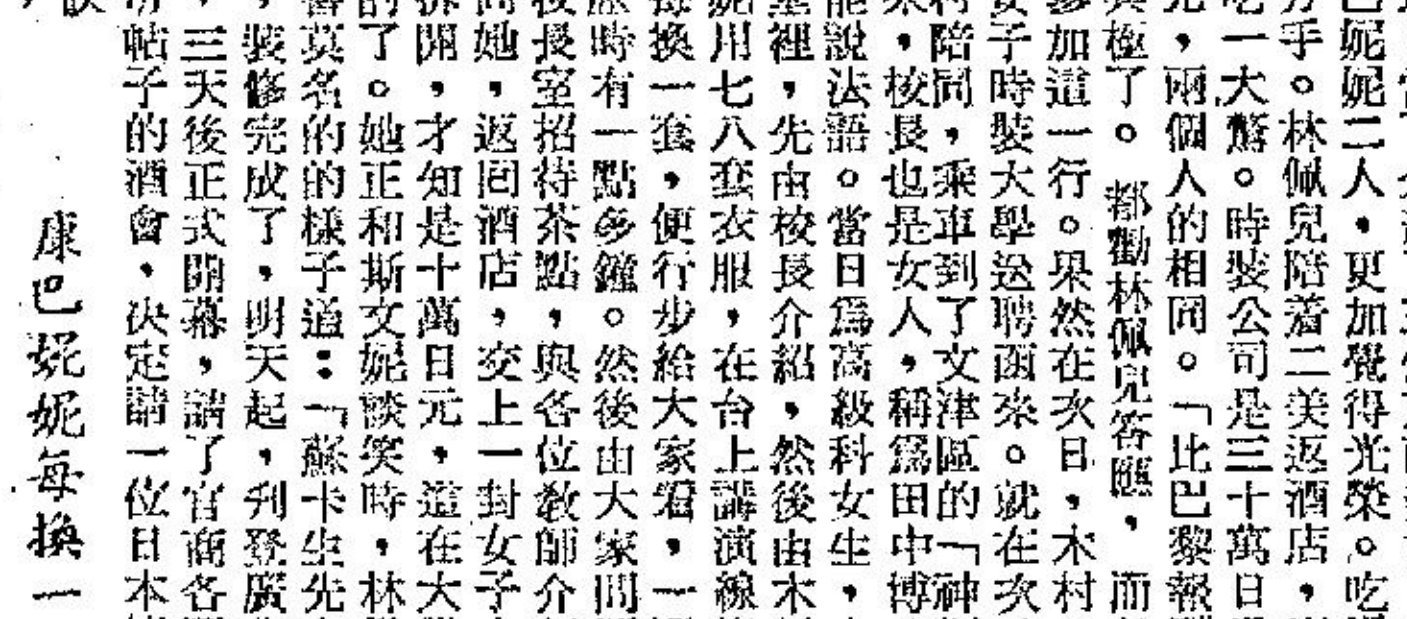 巴妮妮二人,更加覺得光榮。吃
分手。林佩兒陪着二美返酒店,
吃一大驚。時裝公司是三十萬日
元,兩個人的相同。「比巴黎報
興極了。都勸林佩兒答應,而
參加這一行。果然在次日,木村
女子時裝大學送聘函來。就在次
村陪同,乘車到了文津區的「神
來,校長也是女人,稱爲田中博
能說法語。當日爲高級科女生,
室裡,先由校長介紹,然後由木
妮用七八套衣服,在台上講演線
每換一套,便行步給大家看,一
時有一點多鐘。然後由大家問
後長室招待茶點,與各位教師介
她,返回酒店,交上一對女子
拆開,才知是十萬日元,這在大
的了。她正和斯文妮談笑時,林
莫名的的樣子道:「蘇卡生先
,裝修完成了,明天起,刋登廣
,三天後正式開幕,請了官商各
帖子的酒會,決定請一位日本
康巴妮妮每換一